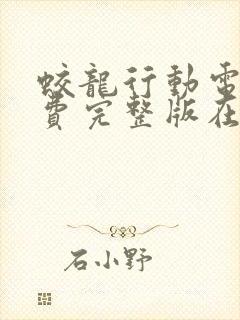 蛟龍行動電
費完整版在
石小野